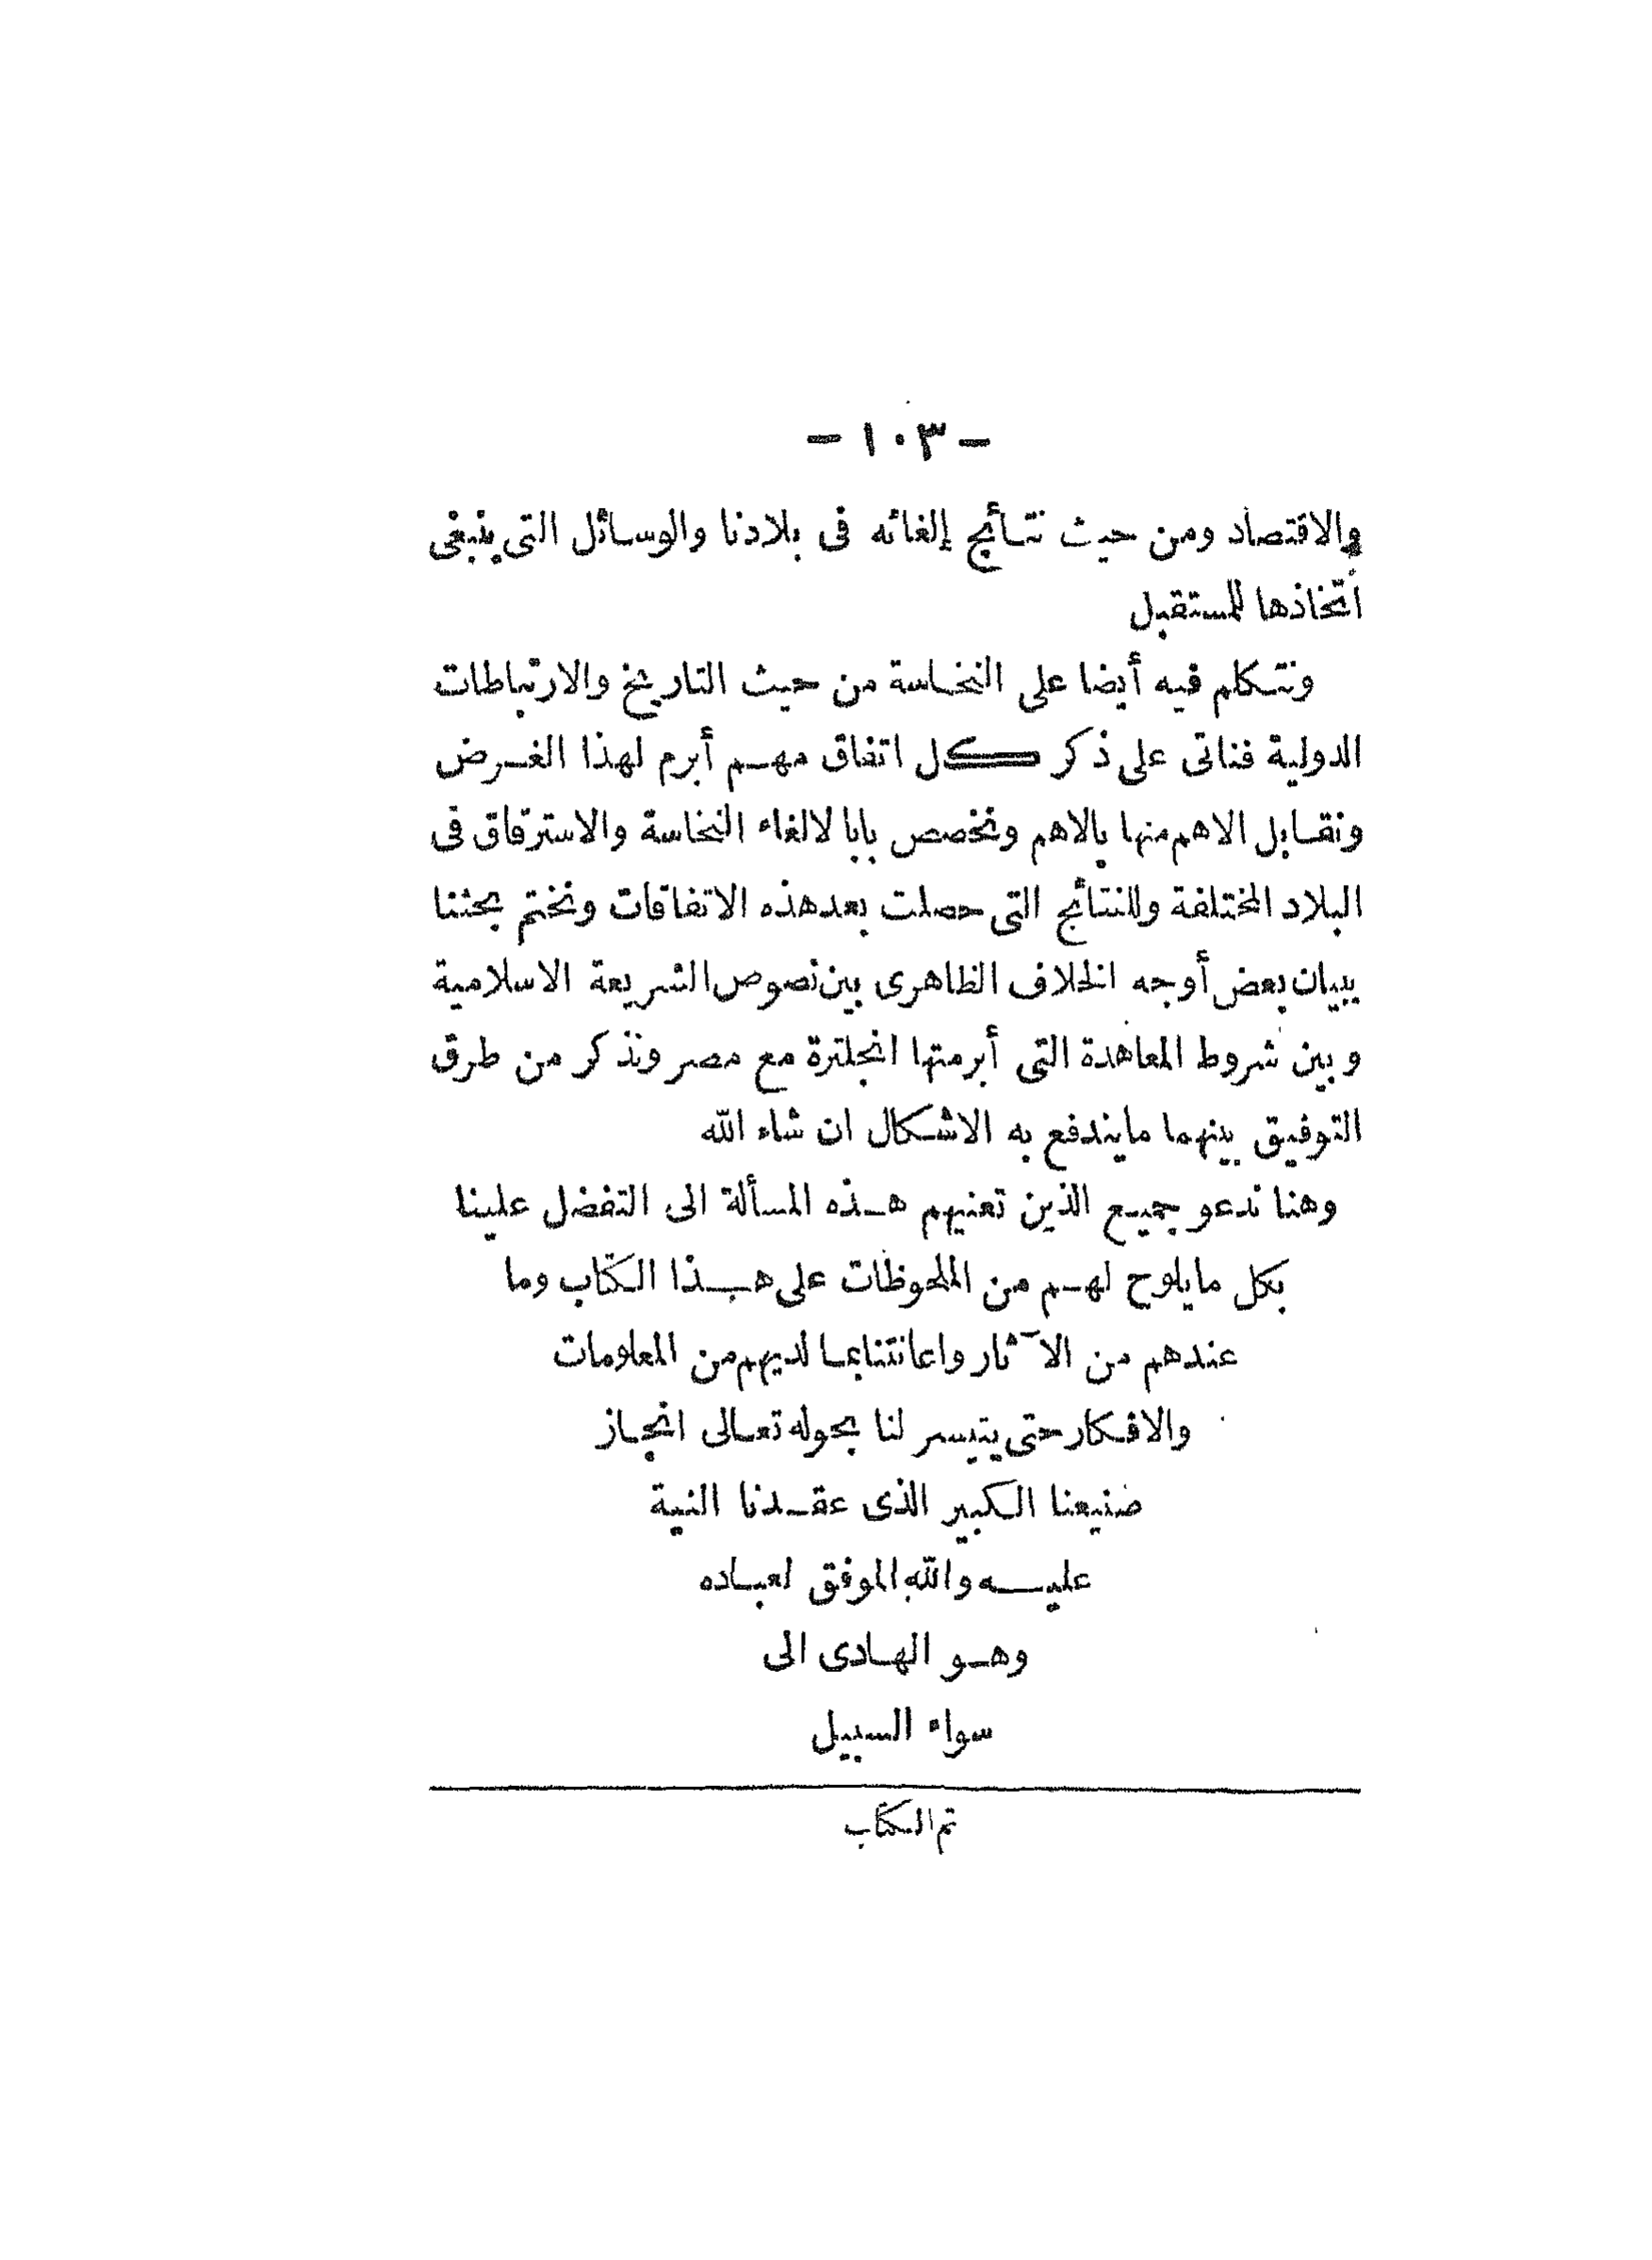 - ١٠٣ -
والاقتصاد ومن حيث نتائج إلغائه فى بلادنا والوسائل التى ينبغى
اتخاذها للمستقبل
ونتكلم فيه أيضا على النخاسة من حيث التاريخ والارتباطات
الدولية فناتى على ذكر كل اتفاق مهم أبرم لهذا الغرض
ونقابل الاهم منها بالاهم ونخصص بابا لالغاء النخاسة والاسترقاق فى
البلاد المختلفة وللنتائج التى حصلت بعد هذه الاتفاقات ونختم بحثنا
ببيان بعض أوجه الخلاف الظاهرى بين نصوص الشريعة الاسلامية
وبين شروط المعاهدة التى أبرمتها انجلترة مع مصر ونذكر من طرق
التوفيق بينهما ما يندفع به الاشكال ان شاء الله
وهنا ندعو جميع الذين تعنيهم هذه المسألة الى التفضل علينا
بكل ما يلوح لهم من الملحوظات على هذا الكتاب وما
عندهم من الآثار واعانتنا بما لديهم من المعلومات
والافكار حتى يتيسر لنا بحوله تعالى انجاز
صنيعنا الكبير الذى عقدنا النية
عليه والله الموفق لعباده
وهو الهادى الى
سواء السبيل
تم الكتاب